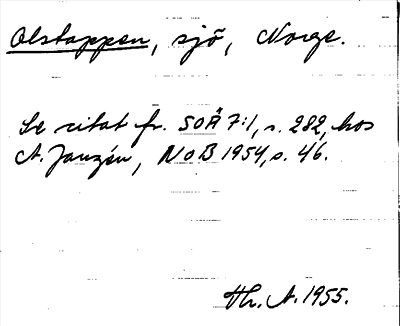 Olstappen, sjö, Norge.
Se citat fr. SOÄ 7:1, s. 282, hos
A. Janzén, NoB 1954, s. 46.
Th. A. 1955.